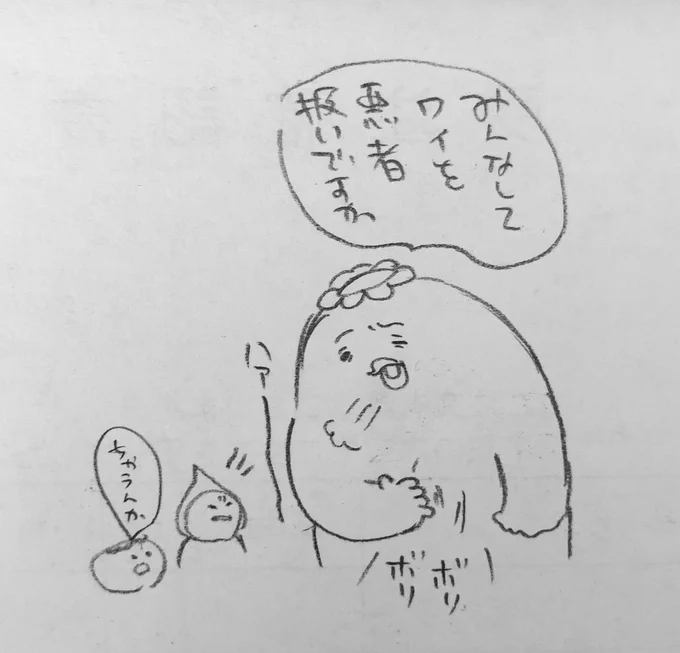 みんなして
ワイを
悪者
扱いですか
ハァー
ちゃうんか
ボリ
ボリ